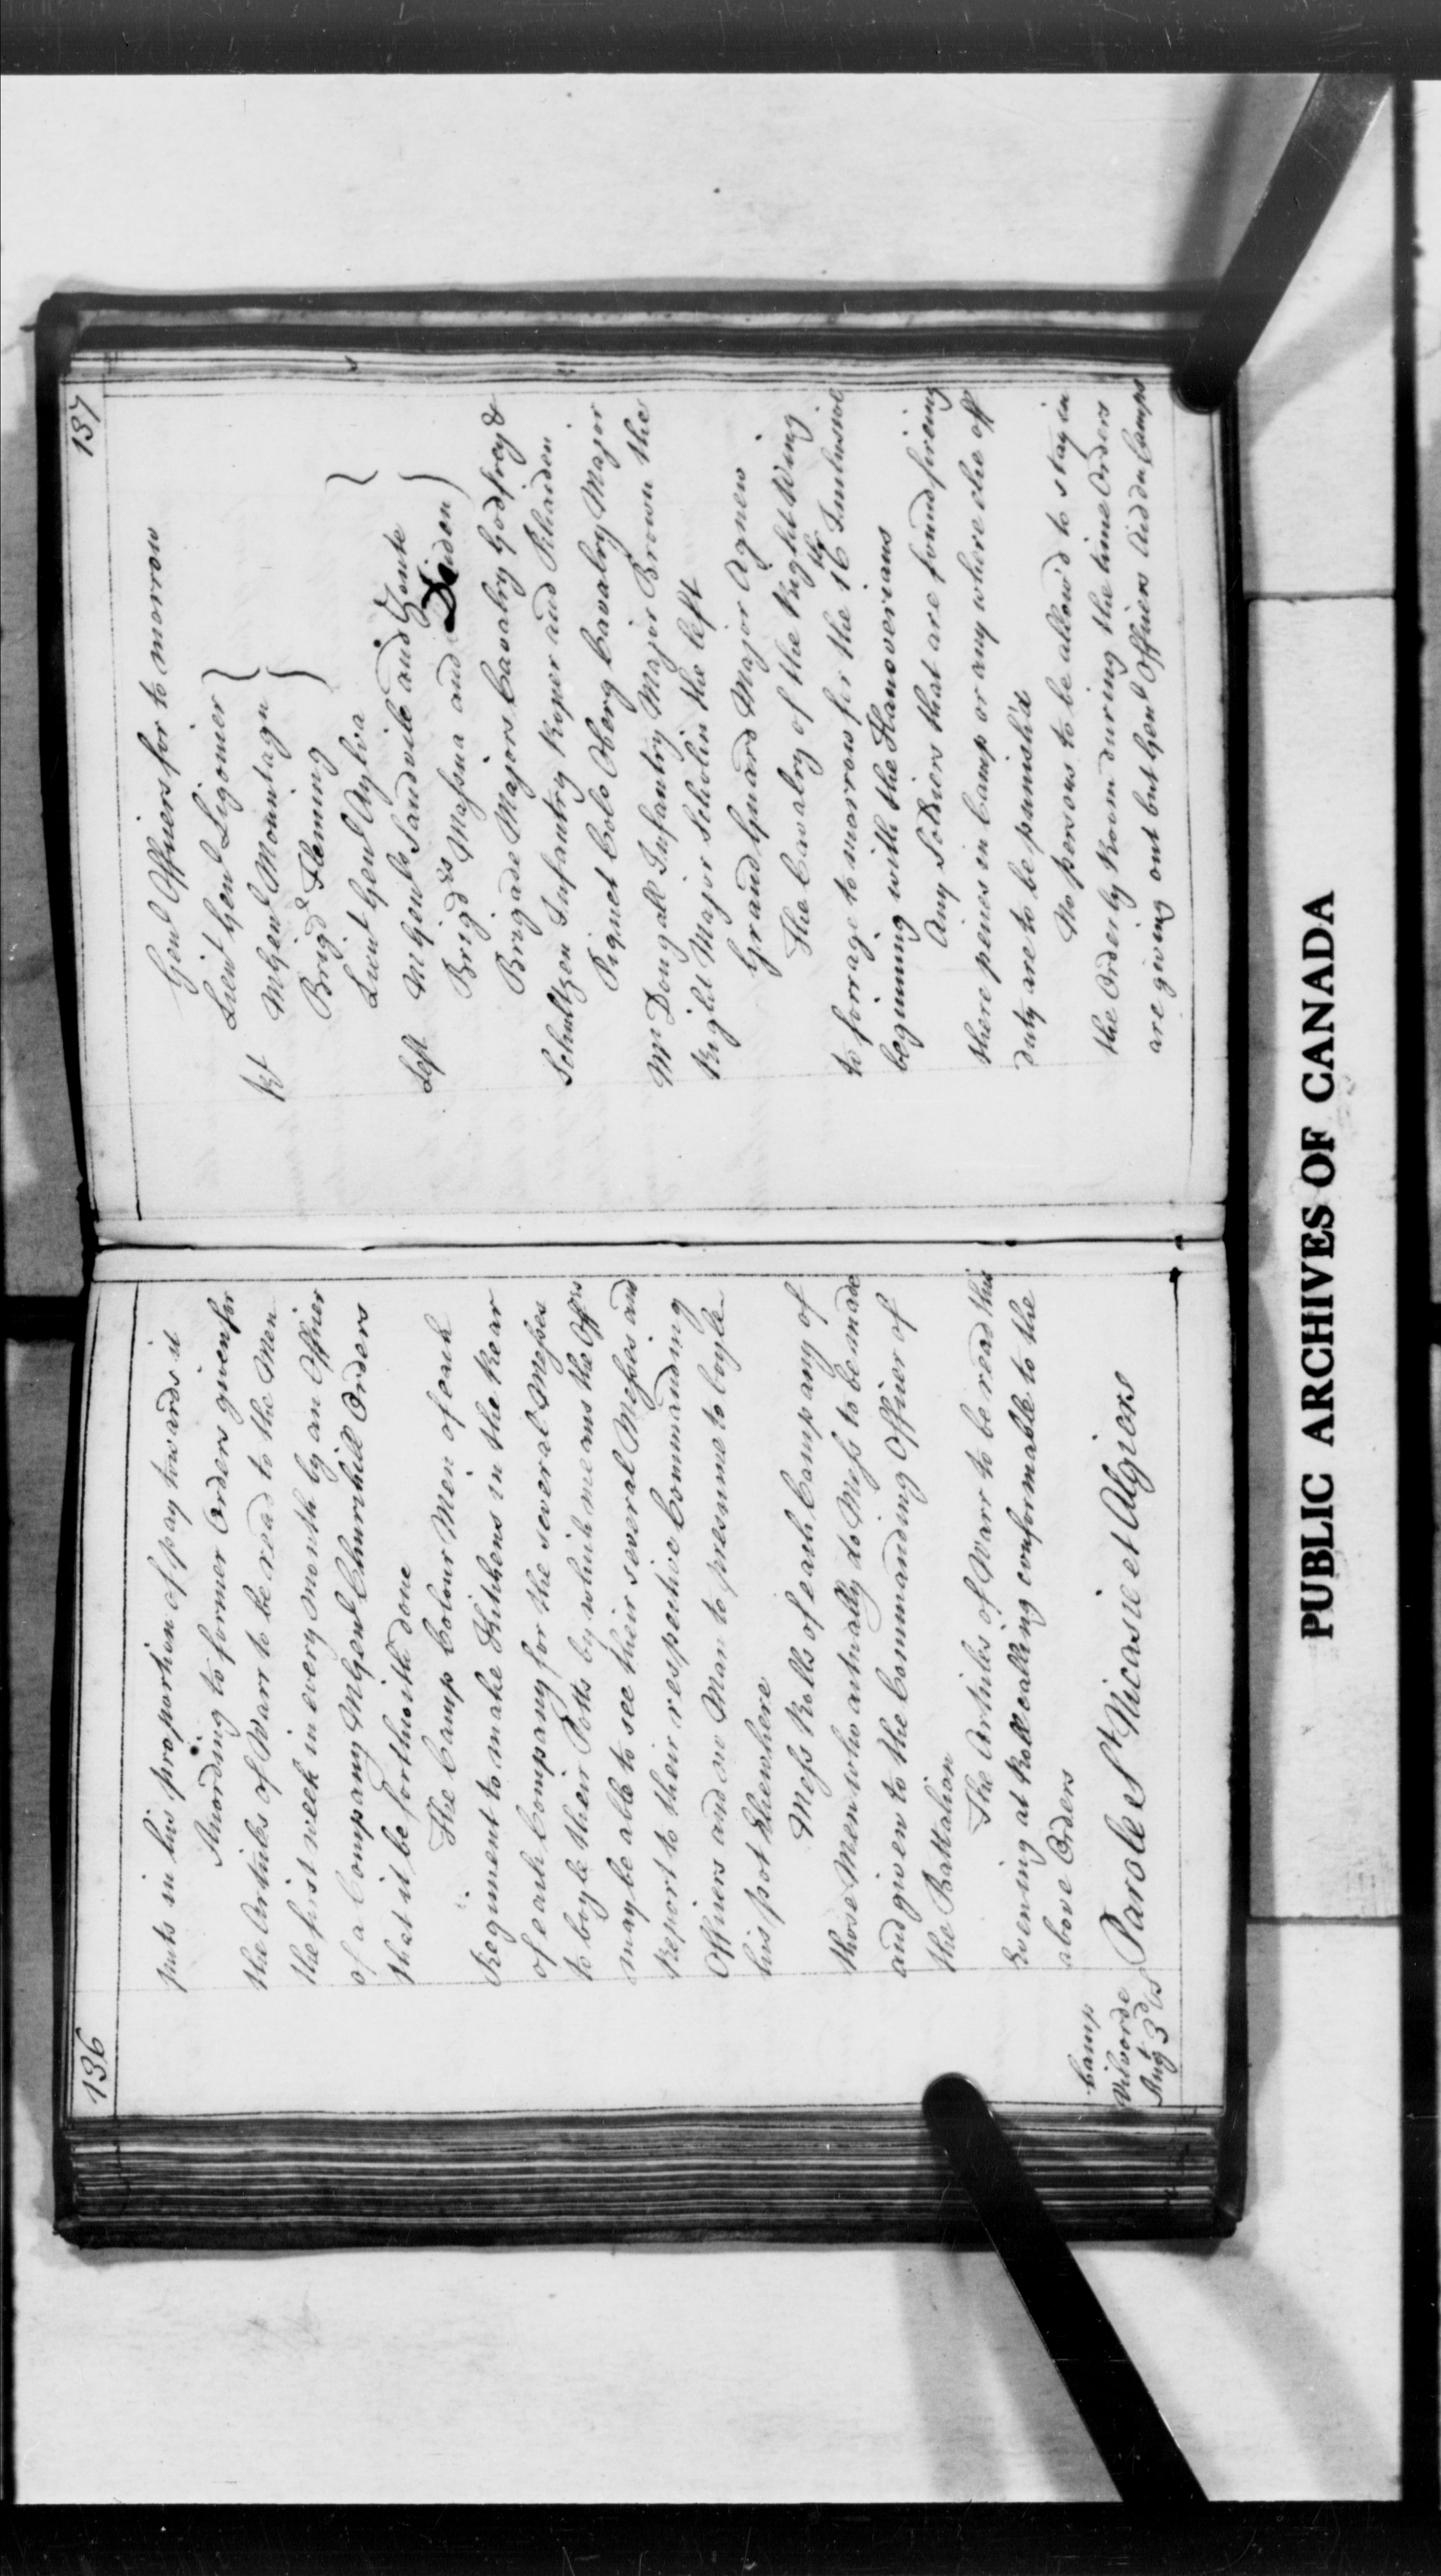 136
puts in his proportion of pay towards it
According to former Orders given for
the Articles of Warr to be read to the Men
the first week in every month by an Officer
of a Company M Genl Churchill Orders
that it be forthwith done
The Camp Colour Men of each
Regiment to make Kitchens in the Rear
of each Company for the several Messes
to boyle their Potts by which means the Offrs
may be able to see their several Messes and
Report to their respective Commanding
Officers and no Man to presume to boyle
his pot Elsewhere
Mess Rolls of each Company of
those Men who actually do Mess to be made
and given to the Commanding Officer of
the Battalion
The Articles of Warr to be read this
Evening at Roll calling conformable to the
above Orders
Camp
Vilvorde
Augt 3d
Parole St Nicasie et Algiers
137
Genl Officers for to morrow
Lieut Genl Ligonier
Rt M Genl Mountagu
Brigd Flemming
Lieut Genl Wylia
Left M Genls Sandovile and Zonte
Brigds Massna and Druden
Brigade Majors Cavalry Godfrey &
Schultzen Infantry Roper and Rhaiden
Piquet Cols Oberg Cavalry Major
Mc Dougall Infantry Major Brown the
Right Major Scholin the left
Grand Guard Major Agnew
The Cavalry of the Right Wing
to forrage to morrow for the 16th Inclusive
beginning with the Hanoverians
Any Soldiers that are found fireing
there peices in Camp or any where else off
duty are to be punish'd
No persons to be allow'd to stay in
the Orderly Room during the time Orders
are giving out but Genl Officers Aid du Camps
PUBLIC ARCHIVES OF CANADA